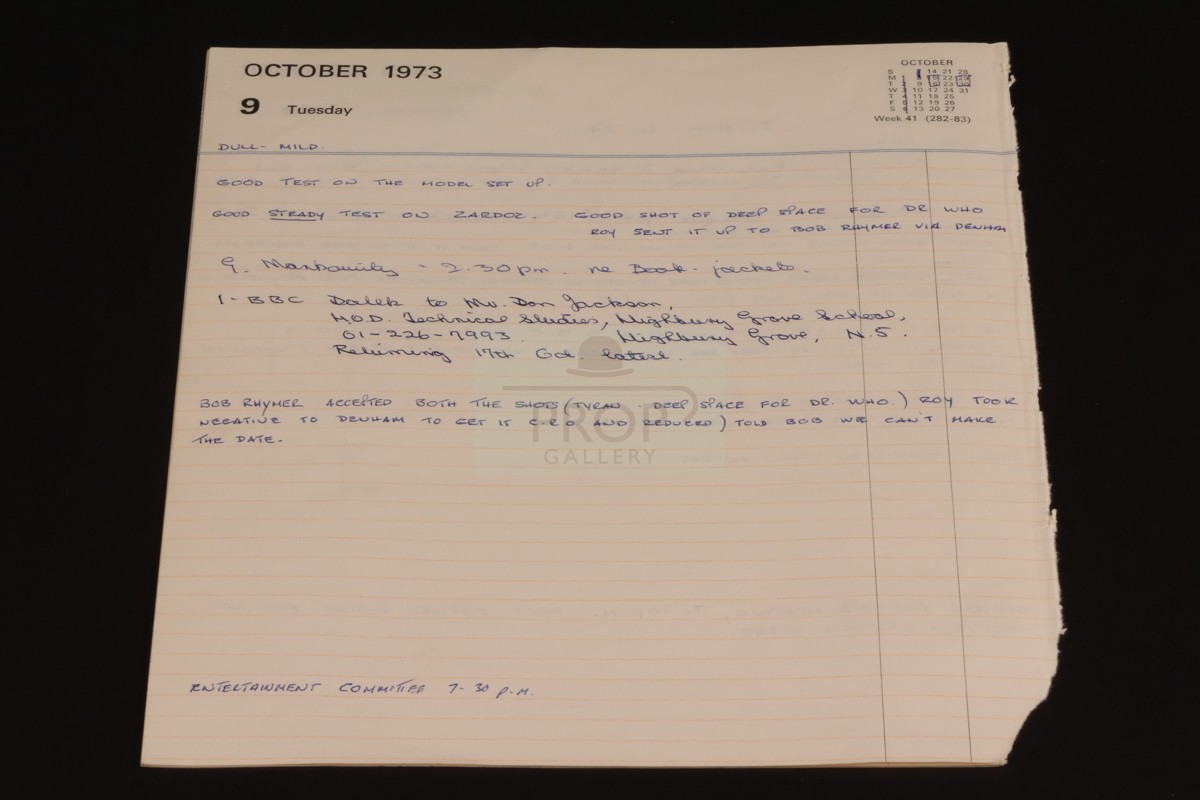 OCTOBER 1973
9 Tuesday
OCTOBER
S 7 14 21 28
M 1 8 15 22 29
T 2 9 16 23 30
W 3 10 17 24 31
T 4 11 18 25
F 5 12 19 26
S 6 13 20 27
Week 41 (282-83)
DULL - MILD.
GOOD TEST ON THE MODEL SET UP.
GOOD STEADY TEST ON ZARDOZ. GOOD SHOT OF DEEP SPACE FOR DR WHO
ROY SENT IT UP TO BOB RHYMER VIA DENHAM
G. - 2.30pm. re Book-jackets.
1 - BBC Dalek to Mr. Don Jackson,
H.O.D. Technical Studies, Highbury Grove School,
01-226-7993. Highbury Grove, N.5.
Returning 17th Oct. latest.
BOB RHYMER ACCEPTED BOTH THE SHOTS (TYRAN - DEEP SPACE FOR DR. WHO.) ROY TOOK
NEGATIVE TO DENHAM TO GET IT C.R.O AND REDUCED) TOLD BOB WE CAN'T MAKE
THE DATE.
PROP
GALLERY
ENTERTAINMENT COMMITTEE 7-30 P.M.